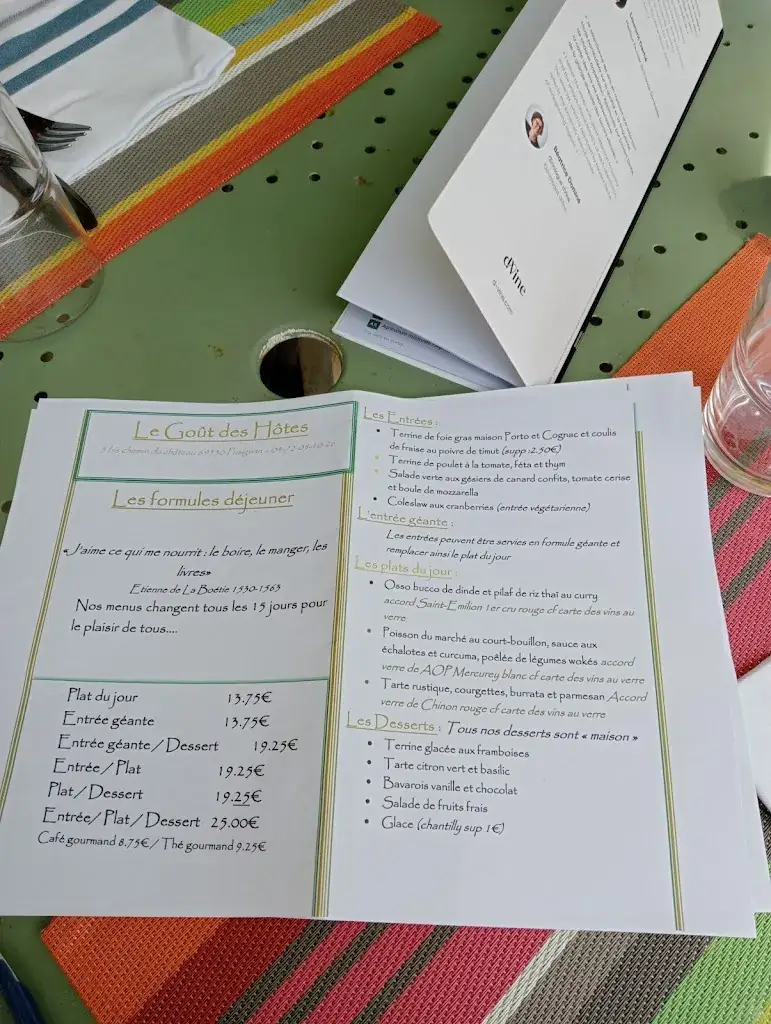 Le Goût des Hôtes
Les formules déjeuner
«J'aime ce qui me nourrit : le boire, le manger, les
livres»
Etienne de La Boétie 1530-1563
Nos menus changent tous les 15 jours pour
le plaisir de tous....
Plat du jour 13.75€
Entrée géante 13.75€
Entrée géante / Dessert 19.25€
Entrée / Plat 19.25€
Plat / Dessert 19.25€
Entrée / Plat / Dessert 25.00€
Café gourmand 8.75€ / Thé gourmand 9.25€
Les Entrées :
• Terrine de foie gras maison Porto et Cognac et coulis
de fraise au poivre de timut (supp :2.50€)
• Terrine de poulet à la tomate, féta et thym
• Salade verte aux gésiers de canard confits, tomate cerise
et boule de mozzarella
• Coleslaw aux cranberries (entrée végétarienne)
L'entrée géante :
Les entrées peuvent être servies en formule géante et
remplacer ainsi le plat du jour
Les plats du jour :
• Osso bucco de dinde et pilaf de riz thaï au curry
accord Saint-Emilion 1er cru rouge cf carte des vins au
verre
• Poisson du marché au court-bouillon, sauce aux
échalotes et curcuma, poêlée de légumes wokés accord
verre de AOP Mercurey blanc cf carte des vins au verre
• Tarte rustique, courgettes, burrata et parmesan Accord
verre de Chinon rouge cf carte des vins au verre
Les Desserts : Tous nos desserts sont « maison »
• Terrine glacée aux framboises
• Tarte citron vert et basilic
• Bavarois vanille et chocolat
• Salade de fruits frais
• Glace (chantilly sup 1€)
d'Vine
d-vine.com